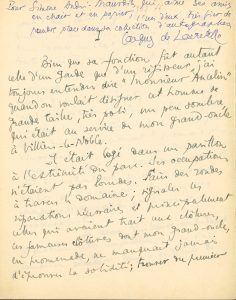 Pour Simone André-Maurois, qui aime ses amis
en chair et en papier, l'un d'eux, très fier de
prendre place dans sa collection d'autographes
Jacques de Lacretelle
I
Bien que sa fonction fût autant
celle d'un garde que d'un régisseur, j'ai
toujours entendu dire "Monsieur
quand on voulait désigner cet homme de
grande taille, très poli, un peu sombre
qui était au service de mon grand-oncle
à Villiers-le-Noble.
Il était logé dans un pavillon
à l'extrémité du parc. Ses occupations
n'étaient pas lourdes. Faire des rondes
à travers le domaine; signaler les
réparations nécessaires et principalement
celles qui avaient trait aux clôtures,
ces fameuses clôtures dont mon grand-oncle,
en promenade, ne manquait jamais
d'éprouver la solidité; trouver du premier